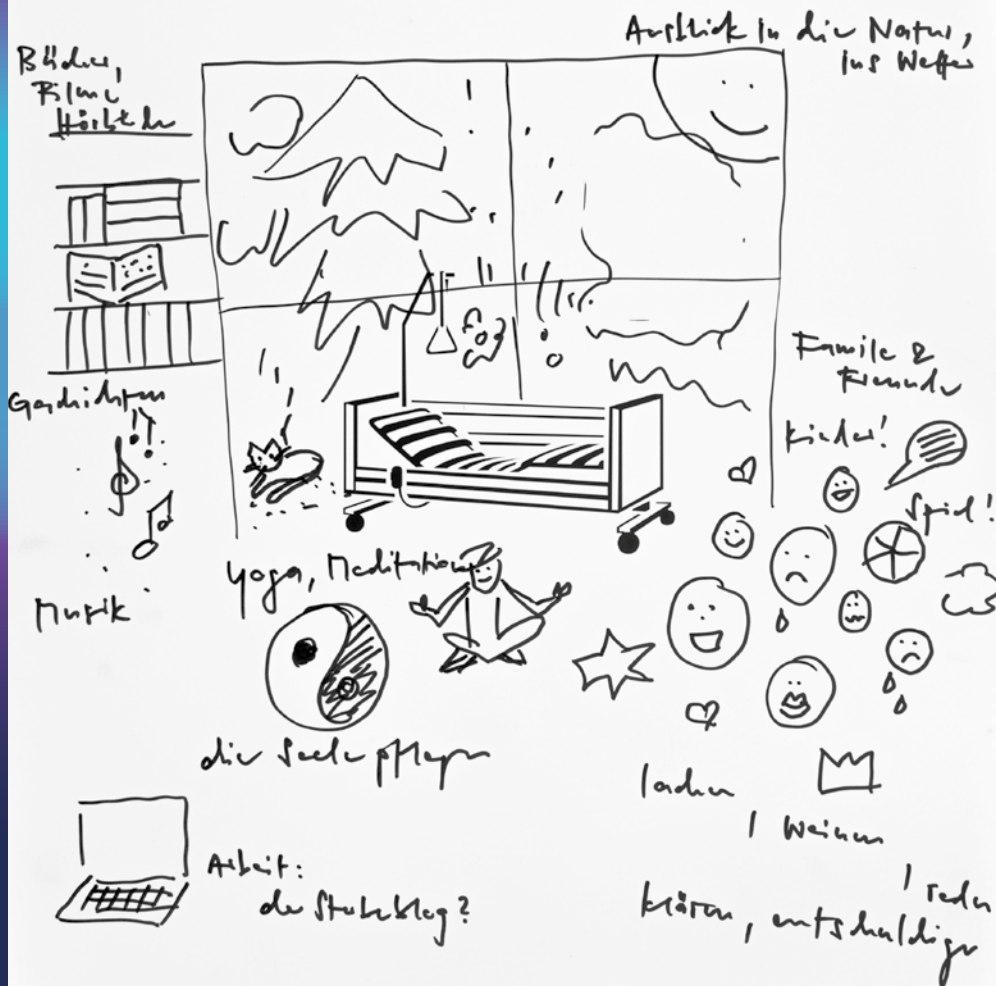 Ausblick in die Natur,
ins Wetter
Bücher,
Filme
Hörbücher
Geschichten
Musik
Familie &
Freunde
Kinder!
Spiel!
Yoga, Meditation
die Seele pflegen
Arbeit:
der
lachen
, weinen
, reden
klären, entschuldigen